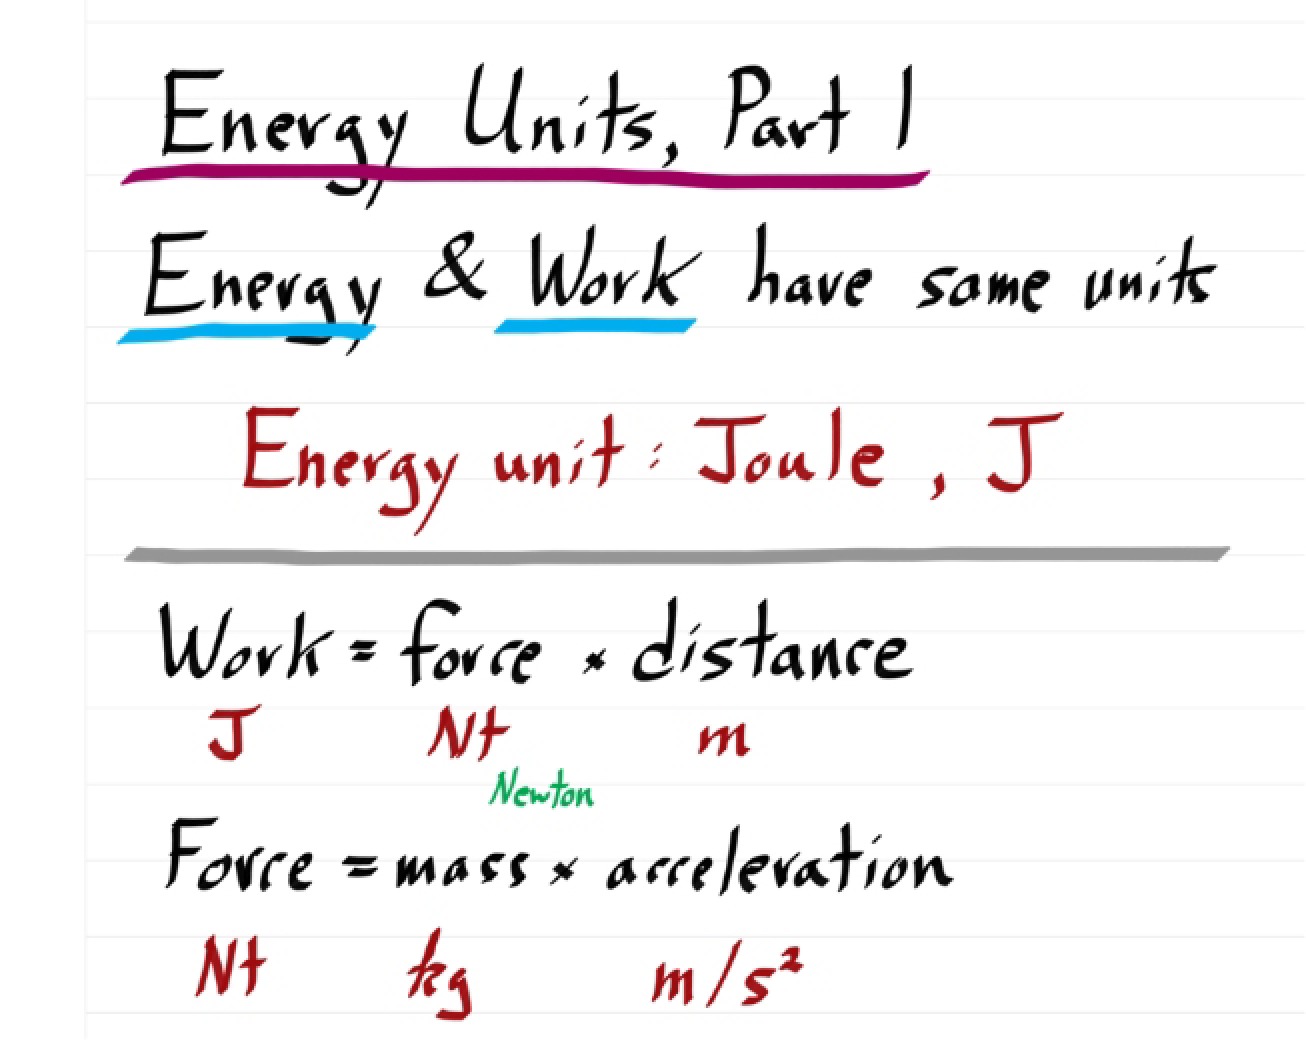 Energy Units, Part 1
Energy & Work have same units
Energy unit: Joule, J
Work = force × distance
J Nt m
Newton
Force = mass × acceleration
Nt kg m/s²